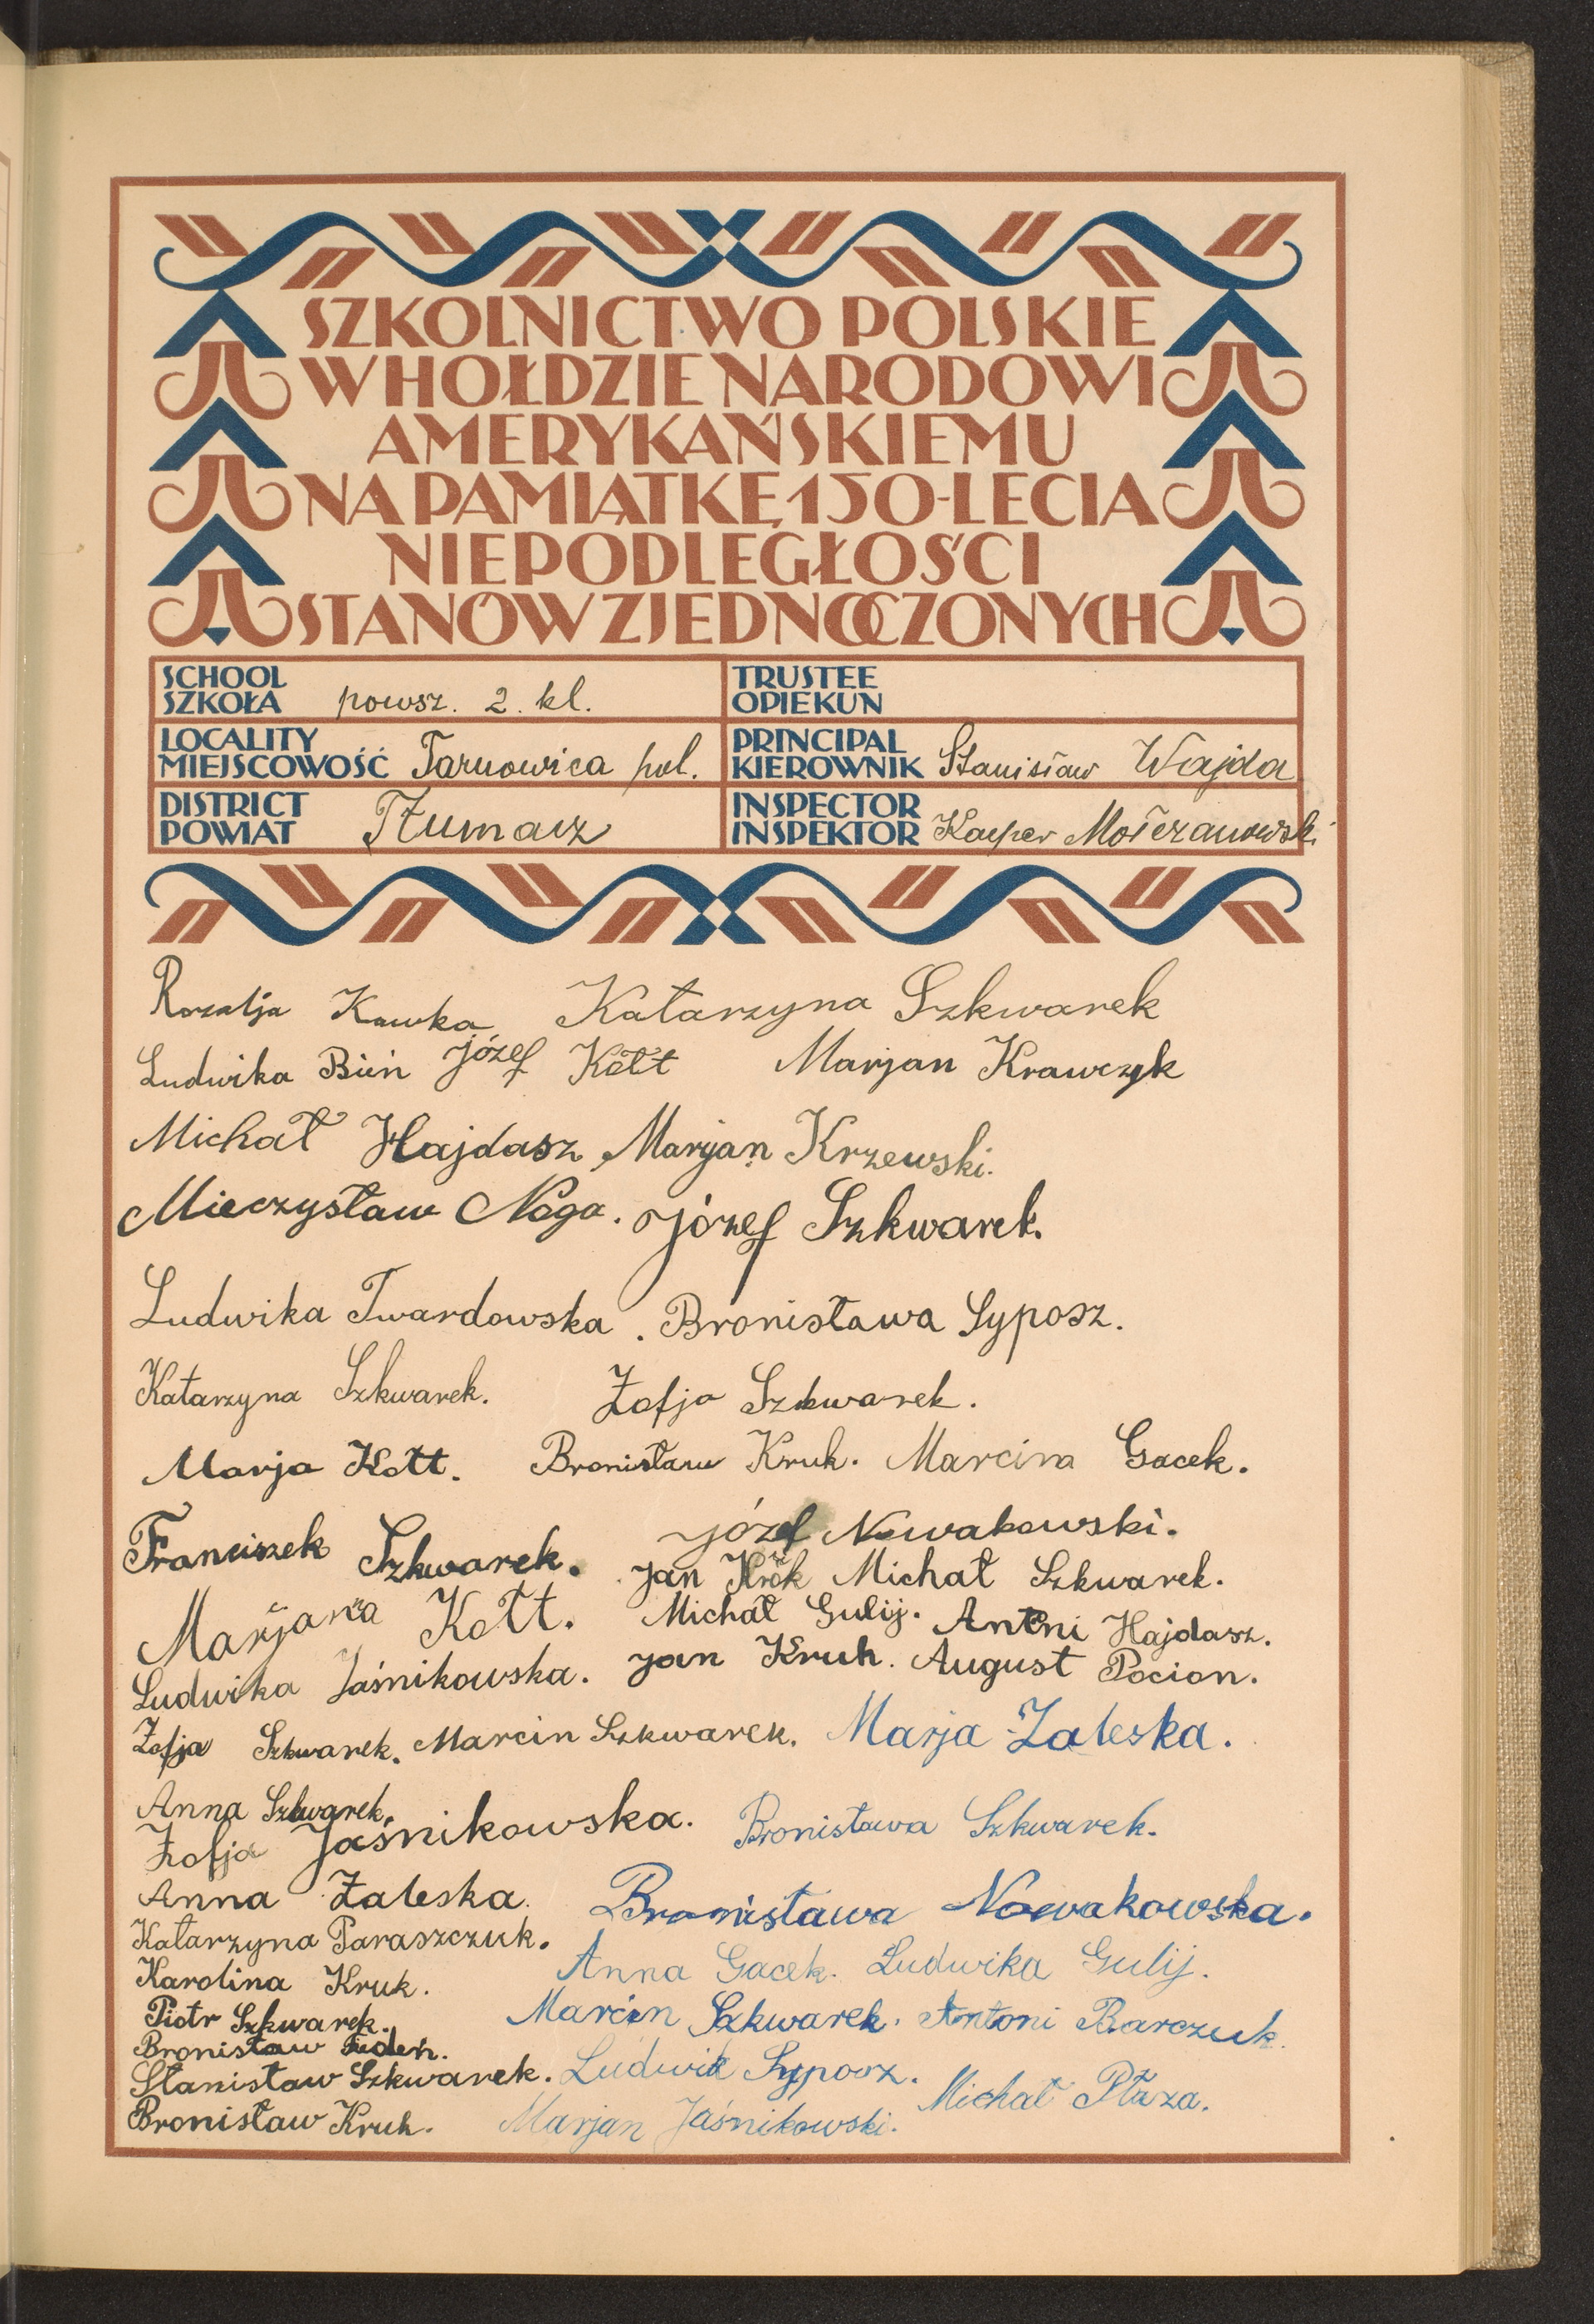 SZKOLNICTWO POLSKIE
W HOŁDZIE NARODOWI
AMERYKAŃSKIEMU
NA PAMIĄTKĘ 150-LECIA
NIEPODLEGŁOŚCI
STANÓW ZJEDNOCZONYCH
SCHOOL
SZKOŁA powsz. 2. kl.
TRUSTEE
OPIEKUN
LOCALITY
MIEJSCOWOŚĆ Tarnowica pol.
PRINCIPAL
KIEROWNIK Stanisław Wajda
DISTRICT
POWIAT Tłumacz
INSPECTOR
INSPEKTOR Kacper Mołczanowski
Rozalja Kawka Katarzyna Szkwarek
Ludwika Bień Józef Kott Marjan Krawczyk
Michał Hajdasz Marjan Krzewski.
Mieczysław Noga. Józef Szkwarek.
Ludwika Twardowska. Bronisława Syposz.
Katarzyna Szkwarek. Zofja Szkwarek.
Marja Kott. Bronisław Kruk. Marcin Gacek.
Franciszek Szkwarek. Józef Nowakowski.
Jan Krók Michał Szkwarek.
Marjana Kott. Michał Gulij. Antoni Hajdasz.
Ludwika Jaśnikowska. Jan Kruk. August Pocion.
Zofja Szkwarek. Marcin Szkwarek. Marja Zaleska.
Anna Szkwarek.
Zofja Jaśnikowska. Bronisława Szkwarek.
Anna Zaleska. Bronisława Nowakowska.
Katarzyna Paraszczuk.
Karolina Kruk. Anna Gacek. Ludwika Gulij.
Piotr Szkwarek. Marcin Szkwarek. Antoni Barczuk.
Bronisław
Stanisław Szkwarek. Ludwik Syposz. Michał Płaza.
Bronisław Kruk. Marjan Jaśnikowski.